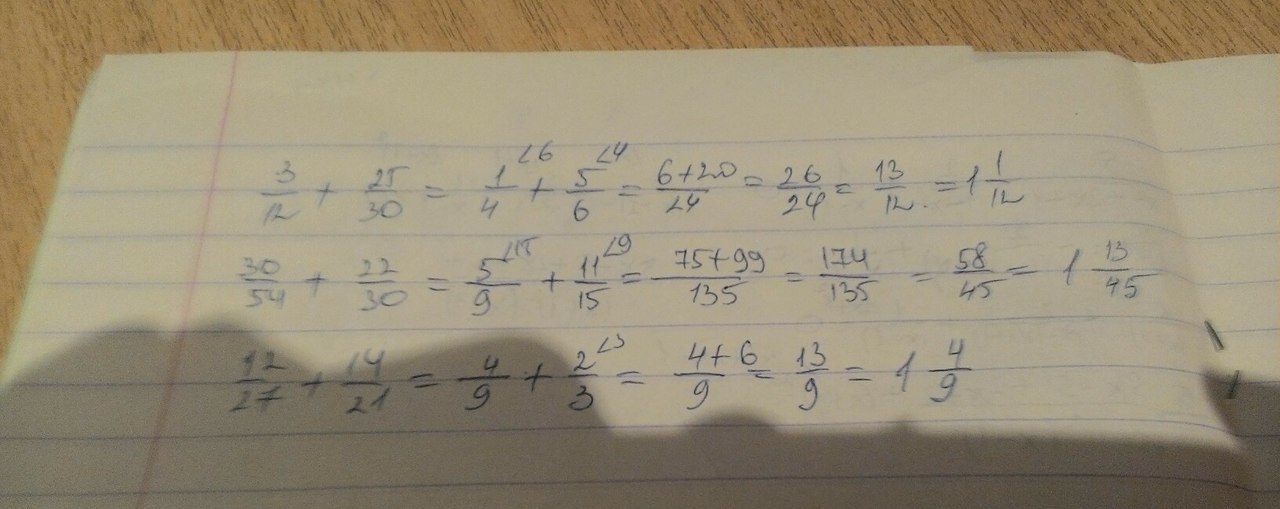 3/12 + 25/30 = 1/4 ∠6 + 5/6 ∠4 = 6+20/24 = 26/24 = 13/12. = 1 1/12
30/54 + 22/30 = 5/9 ∠15 + 11/15 ∠9 = 75+99/135 = 174/135 = 58/45 = 1 13/45
12/27 + 14/21 = 4/9 + 2/3 ∠3 = 4+6/9 = 13/9 = 1 4/9